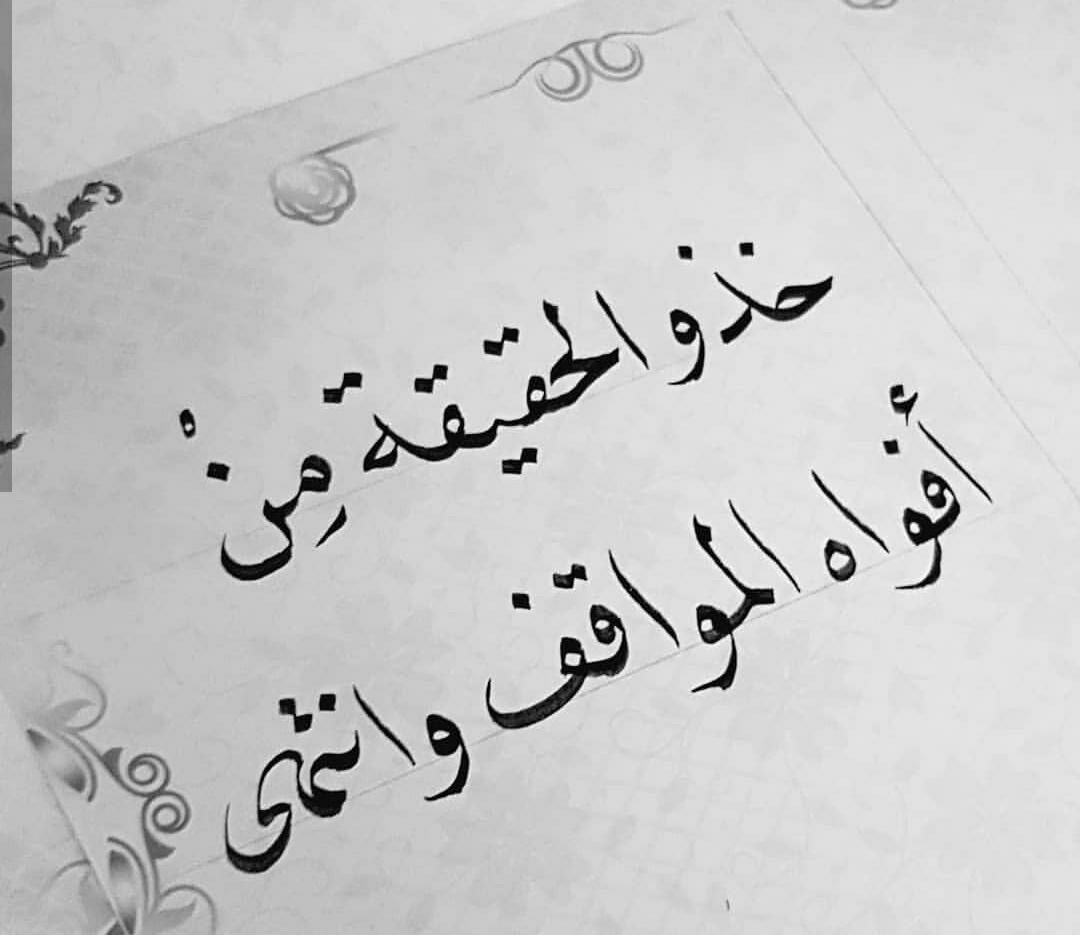 خذو الحقيقة مِنْ
أفواه المواقف وانتهى